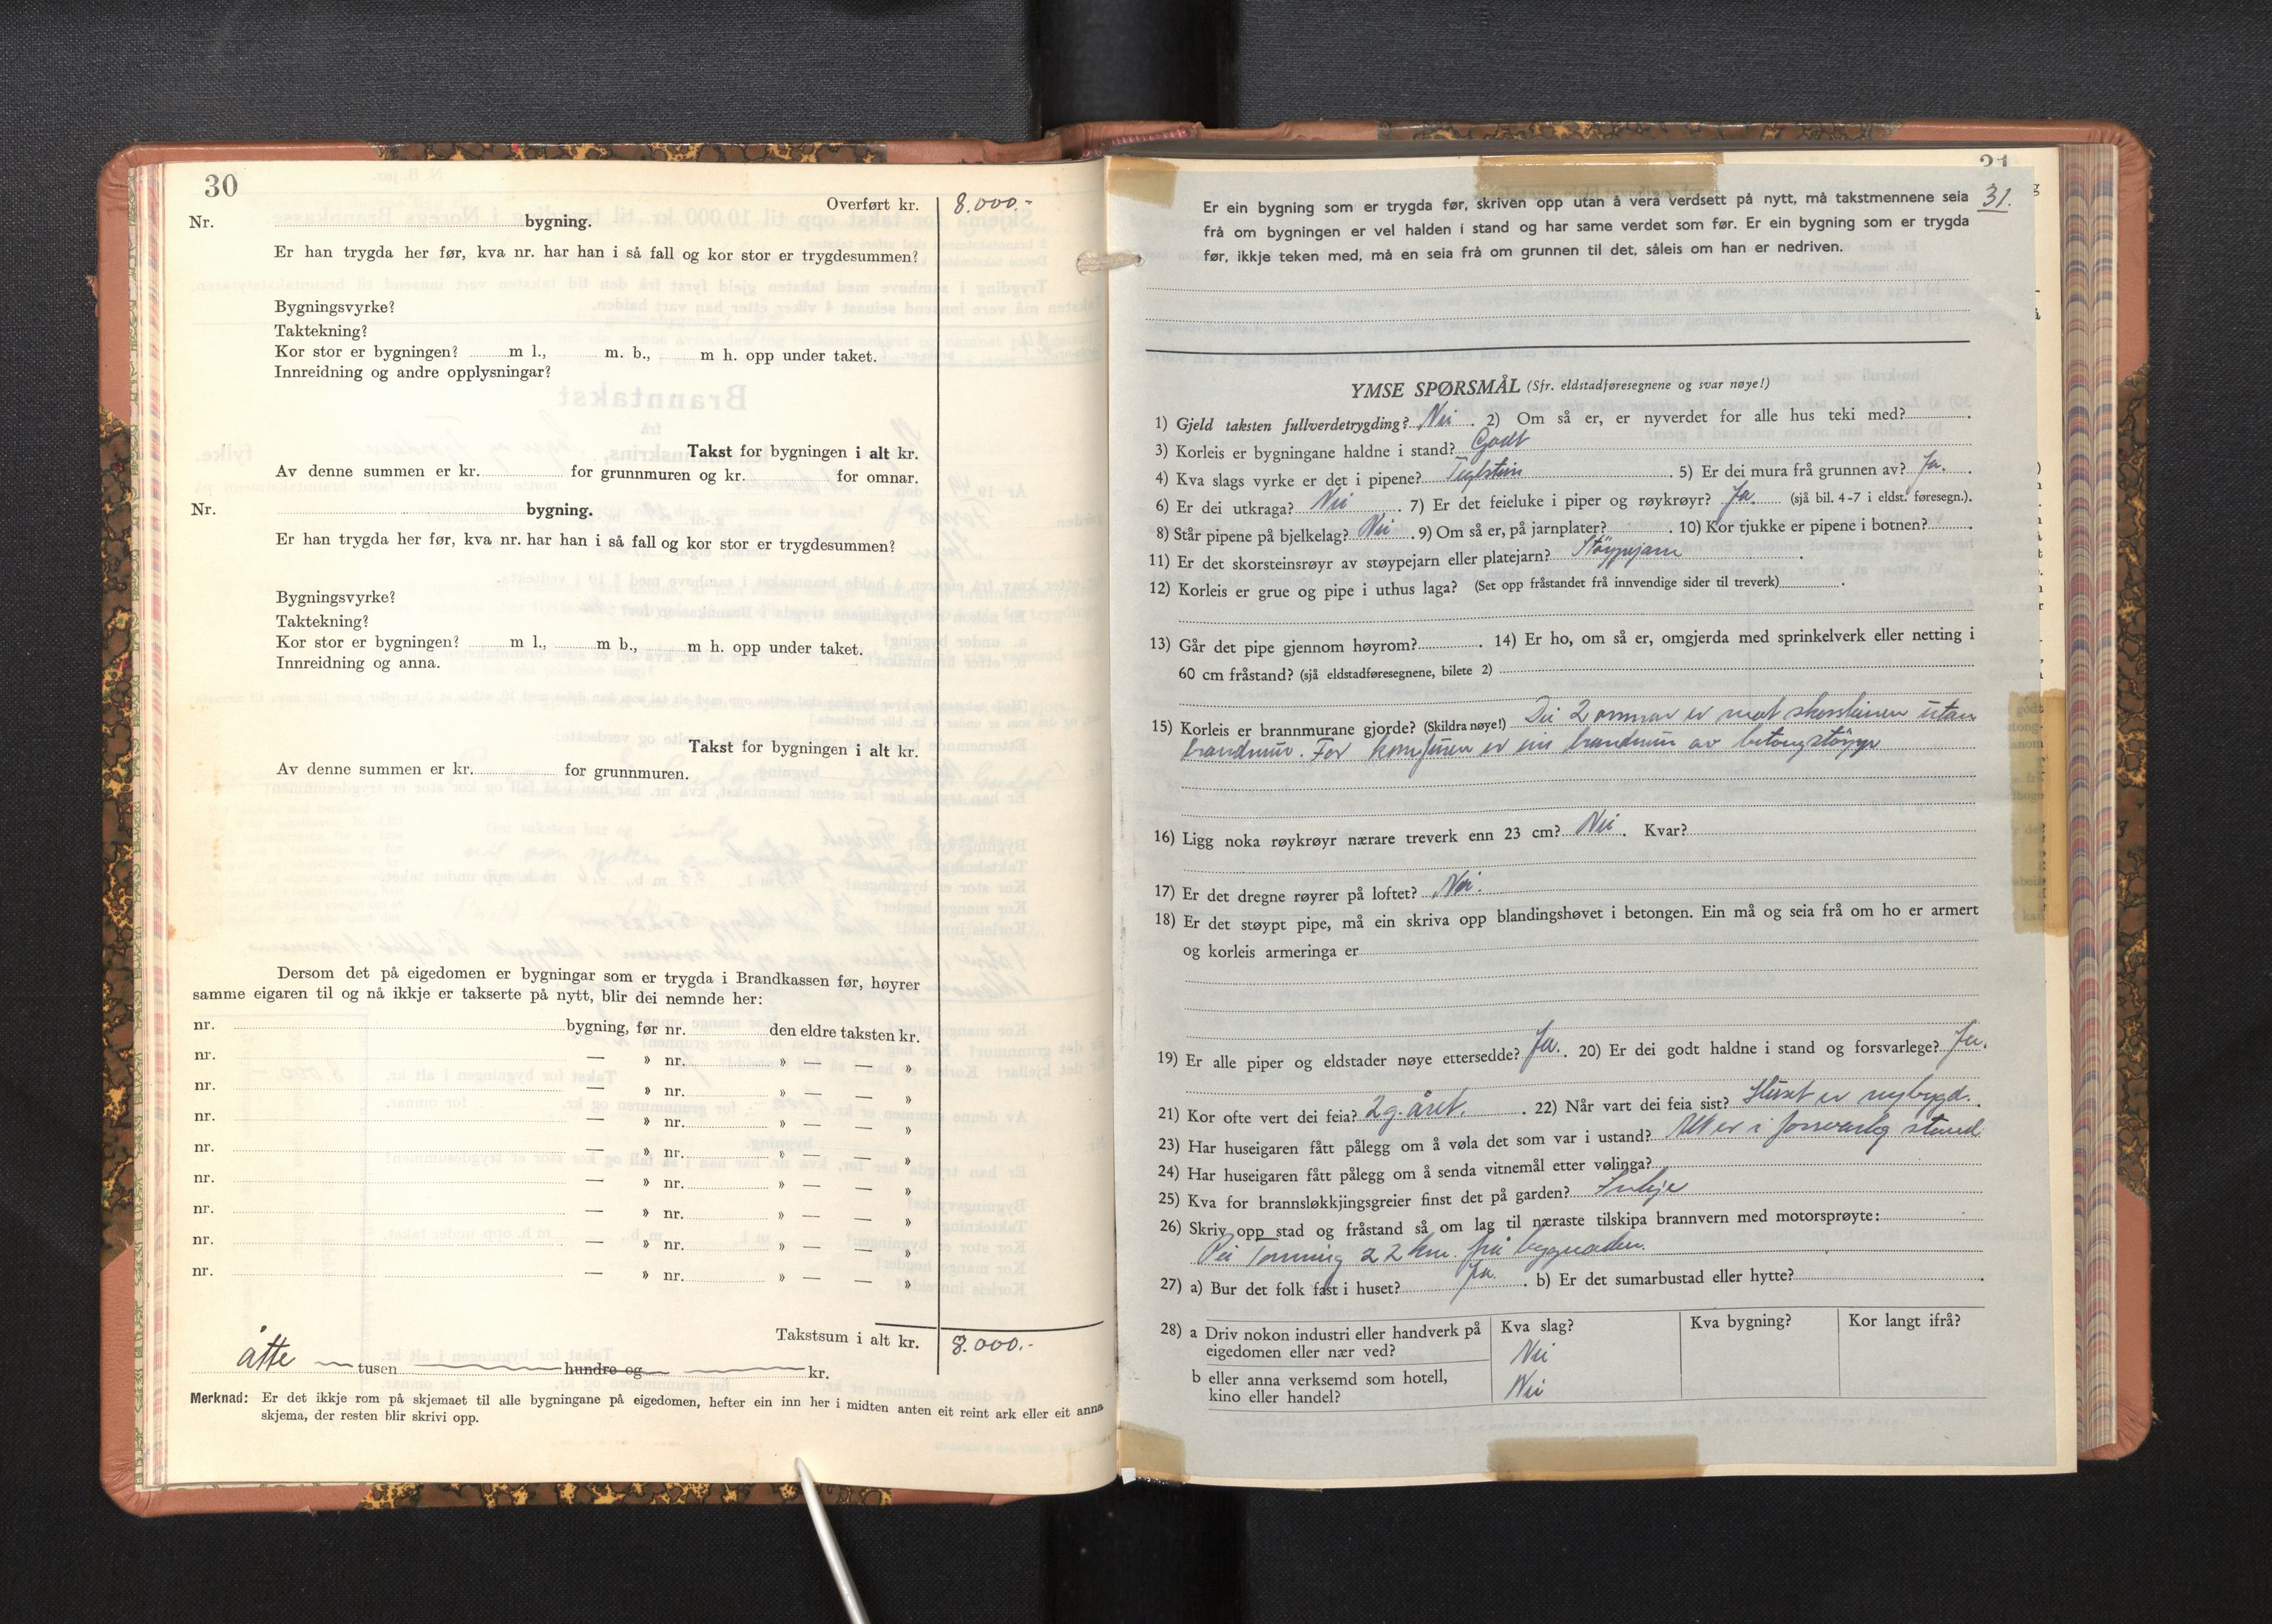 30
Overført kr. 8.000.-
Nr. bygning.
Er han trygda her før, kva nr. har han i så fall og kor stor er trygdesummen?
Bygningsvyrke?
Taktekning?
Kor stor er bygningen? m l., m. b., m h. opp under taket.
Innreidning og andre opplysningar?
Takst for bygningen i alt kr.
Av denne summen er kr. for grunnmuren og kr. for omnar.
Nr. bygning.
Er han trygda her før, kva nr. har han i så fall og kor stor er trygdesummen?
Bygningsvyrke?
Taktekning?
Kor stor er bygningen? m l., m b., m h. opp under taket.
Innreidning og anna.
Takst for bygningen i alt kr.
Av denne summen er kr. for grunnmuren.
Dersom det på eigedomen er bygningar som er trygda i Brandkassen før, høyrer
samme eigaren til og nå ikkje er takserte på nytt, blir dei nemnde her:
nr. bygning, før nr. den eldre taksten kr.
nr. — » nr. » — — »
nr. — » nr. » — — »
nr. — » nr. » — — »
nr. — » nr. » — — »
nr. — » nr. » — — »
nr. — » nr. » — — »
nr. — » nr. » — — »
nr. — » nr. » — — »
Takstsum i alt kr. 8.000.-
åtte — tusen hundre og kr.
Merknad: Er det ikkje rom på skjemaet til alle bygningane på eigedomen, hefter ein inn her i midten anten eit reint ark eller eit anna
skjema, der resten blir skrivi opp.
31
31.
Er ein bygning som er trygda før, skriven opp utan å vera verdsett på nytt, må takstmennene seia
frå om bygningen er vel halden i stand og har same verdet som før. Er ein bygning som er trygda
før, ikkje teken med, må en seia frå om grunnen til det, såleis om han er nedriven.
YMSE SPØRSMÅL (Sfr. eldstadføresegnene og svar nøye!)
1) Gjeld taksten fullverdetrygding? Nei. 2) Om så er, er nyverdet for alle hus teki med?
3) Korleis er bygningane haldne i stand? Godt
4) Kva slags vyrke er det i pipene? Teglstein. 5) Er dei mura frå grunnen av? Ja.
6) Er dei utkraga? Nei. 7) Er det feieluke i piper og røykrøyr? Ja. (sjå bil. 4-7 i eldst. føresegn.).
8) Står pipene på bjelkelag? Nei. 9) Om så er, på jarnplater? 10) Kor tjukke er pipene i botnen?
11) Er det skorsteinsrøyr av støypejarn eller platejarn? Støypejarn.
12) Korleis er grue og pipe i uthus laga? (Set opp fråstandet frå innvendige sider til treverk)
13) Går det pipe gjennom høyrom? 14) Er ho, om så er, omgjerda med sprinkelverk eller netting i
60 cm fråstand? (sjå eldstadføresegnene, bilete 2)
15) Korleis er brannmurane gjorde? (Skildra nøye!) Dei 2 omnar er mot skorsteinen utan
brandmur. For komfuren er ein brandmur av betongstøype
16) Ligg noka røykrøyr nærare treverk enn 23 cm? Nei. Kvar?
17) Er det dregne røyrer på loftet? Nei.
18) Er det støypt pipe, må ein skriva opp blandingshøvet i betongen. Ein må og seia frå om ho er armert
og korleis armeringa er
19) Er alle piper og eldstader nøye ettersedde? Ja. 20) Er dei godt haldne i stand og forsvarlege? Ja.
21) Kor ofte vert dei feia? 2 g. året. 22) Når vart dei feia sist? Huset er nybygd.
23) Har huseigaren fått pålegg om å vøla det som var i ustand? Alt er i forsvarleg stand
24) Har huseigaren fått pålegg om å senda vitnemål etter vølinga?
25) Kva for brannsløkkjingsgreier finst det på garden? Inkje
26) Skriv opp stad og fråstand så om lag til næraste tilskipa brannvern med motorsprøyte:
På Tonning 22 km. frå byggnaden.
27) a) Bur det folk fast i huset? Ja. b) Er det sumarbustad eller hytte?
28) a Driv nokon industri eller handverk på Kva slag? Kva bygning? Kor langt ifrå?
eigedomen eller nær ved? Nei
b eller anna verksemd som hotell, Nei
kino eller handel?